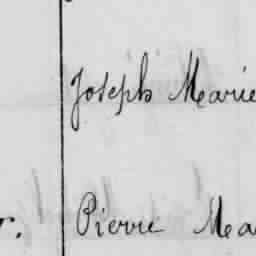 Joseph Marie
r. Pierre Ma